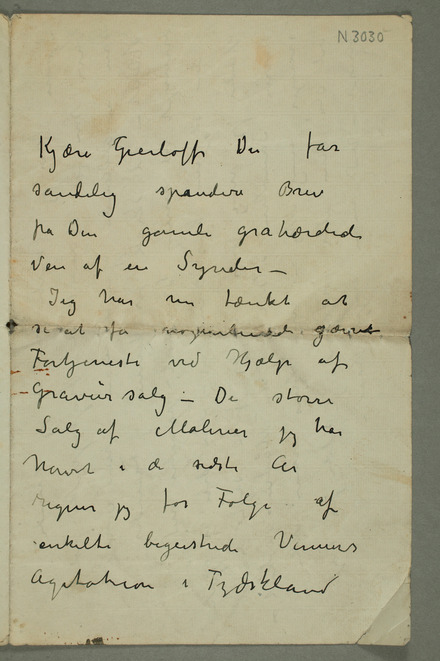 N 3030
Kjære Gierløff Du far
sandelig spandere Brev
på Din gamle gråhærdede
Ven af en Synder —
Jeg har nu tænkt at
se at få
Fortjeneste ved Hjælp af
Gravürsalg — De større
Salg af Malerier jeg har
havt i de sidste Ar
regner jeg for Følge af
enkelte begeistrede Venners
Agitation i Tydskland